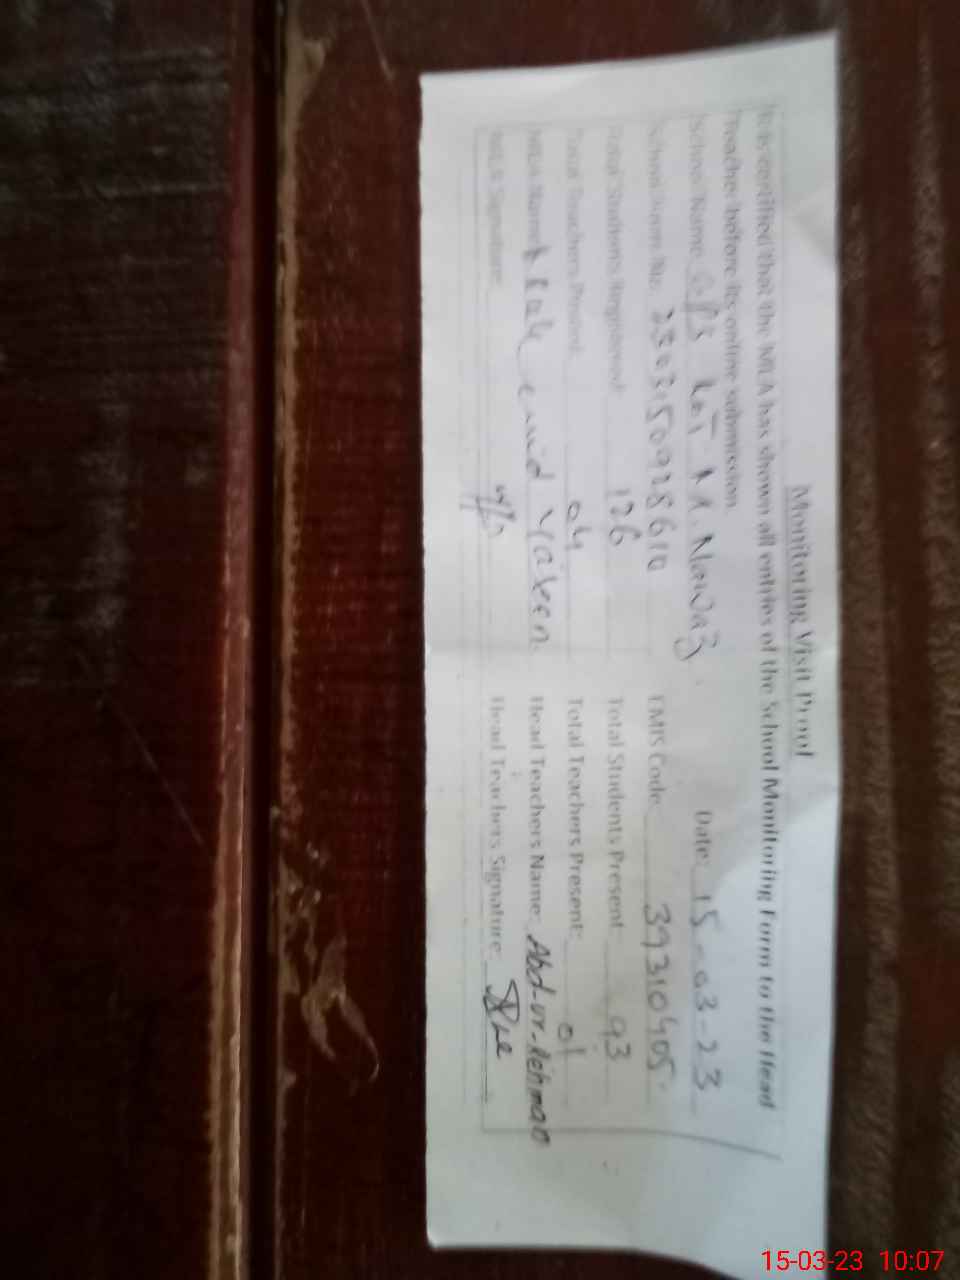 Monitoring Visit Proof
It is certified that the MEA has shown all entries of the School Monitoring Form to the Head
Teacher before its online submission.
School Name GPS KOT M. Nawaz. Date: 15-03-23
School Form No. EMIS Code 39310405.
Total Students Registered 126 Total Students Present 93
Total Teachers Posted 04 Total Teachers Present: 01
MEA Name Yaseen. Head Teachers Name: Abd-ur-Rehman
MEA Signature Head Teachers Signature:
15-03-23 10:07